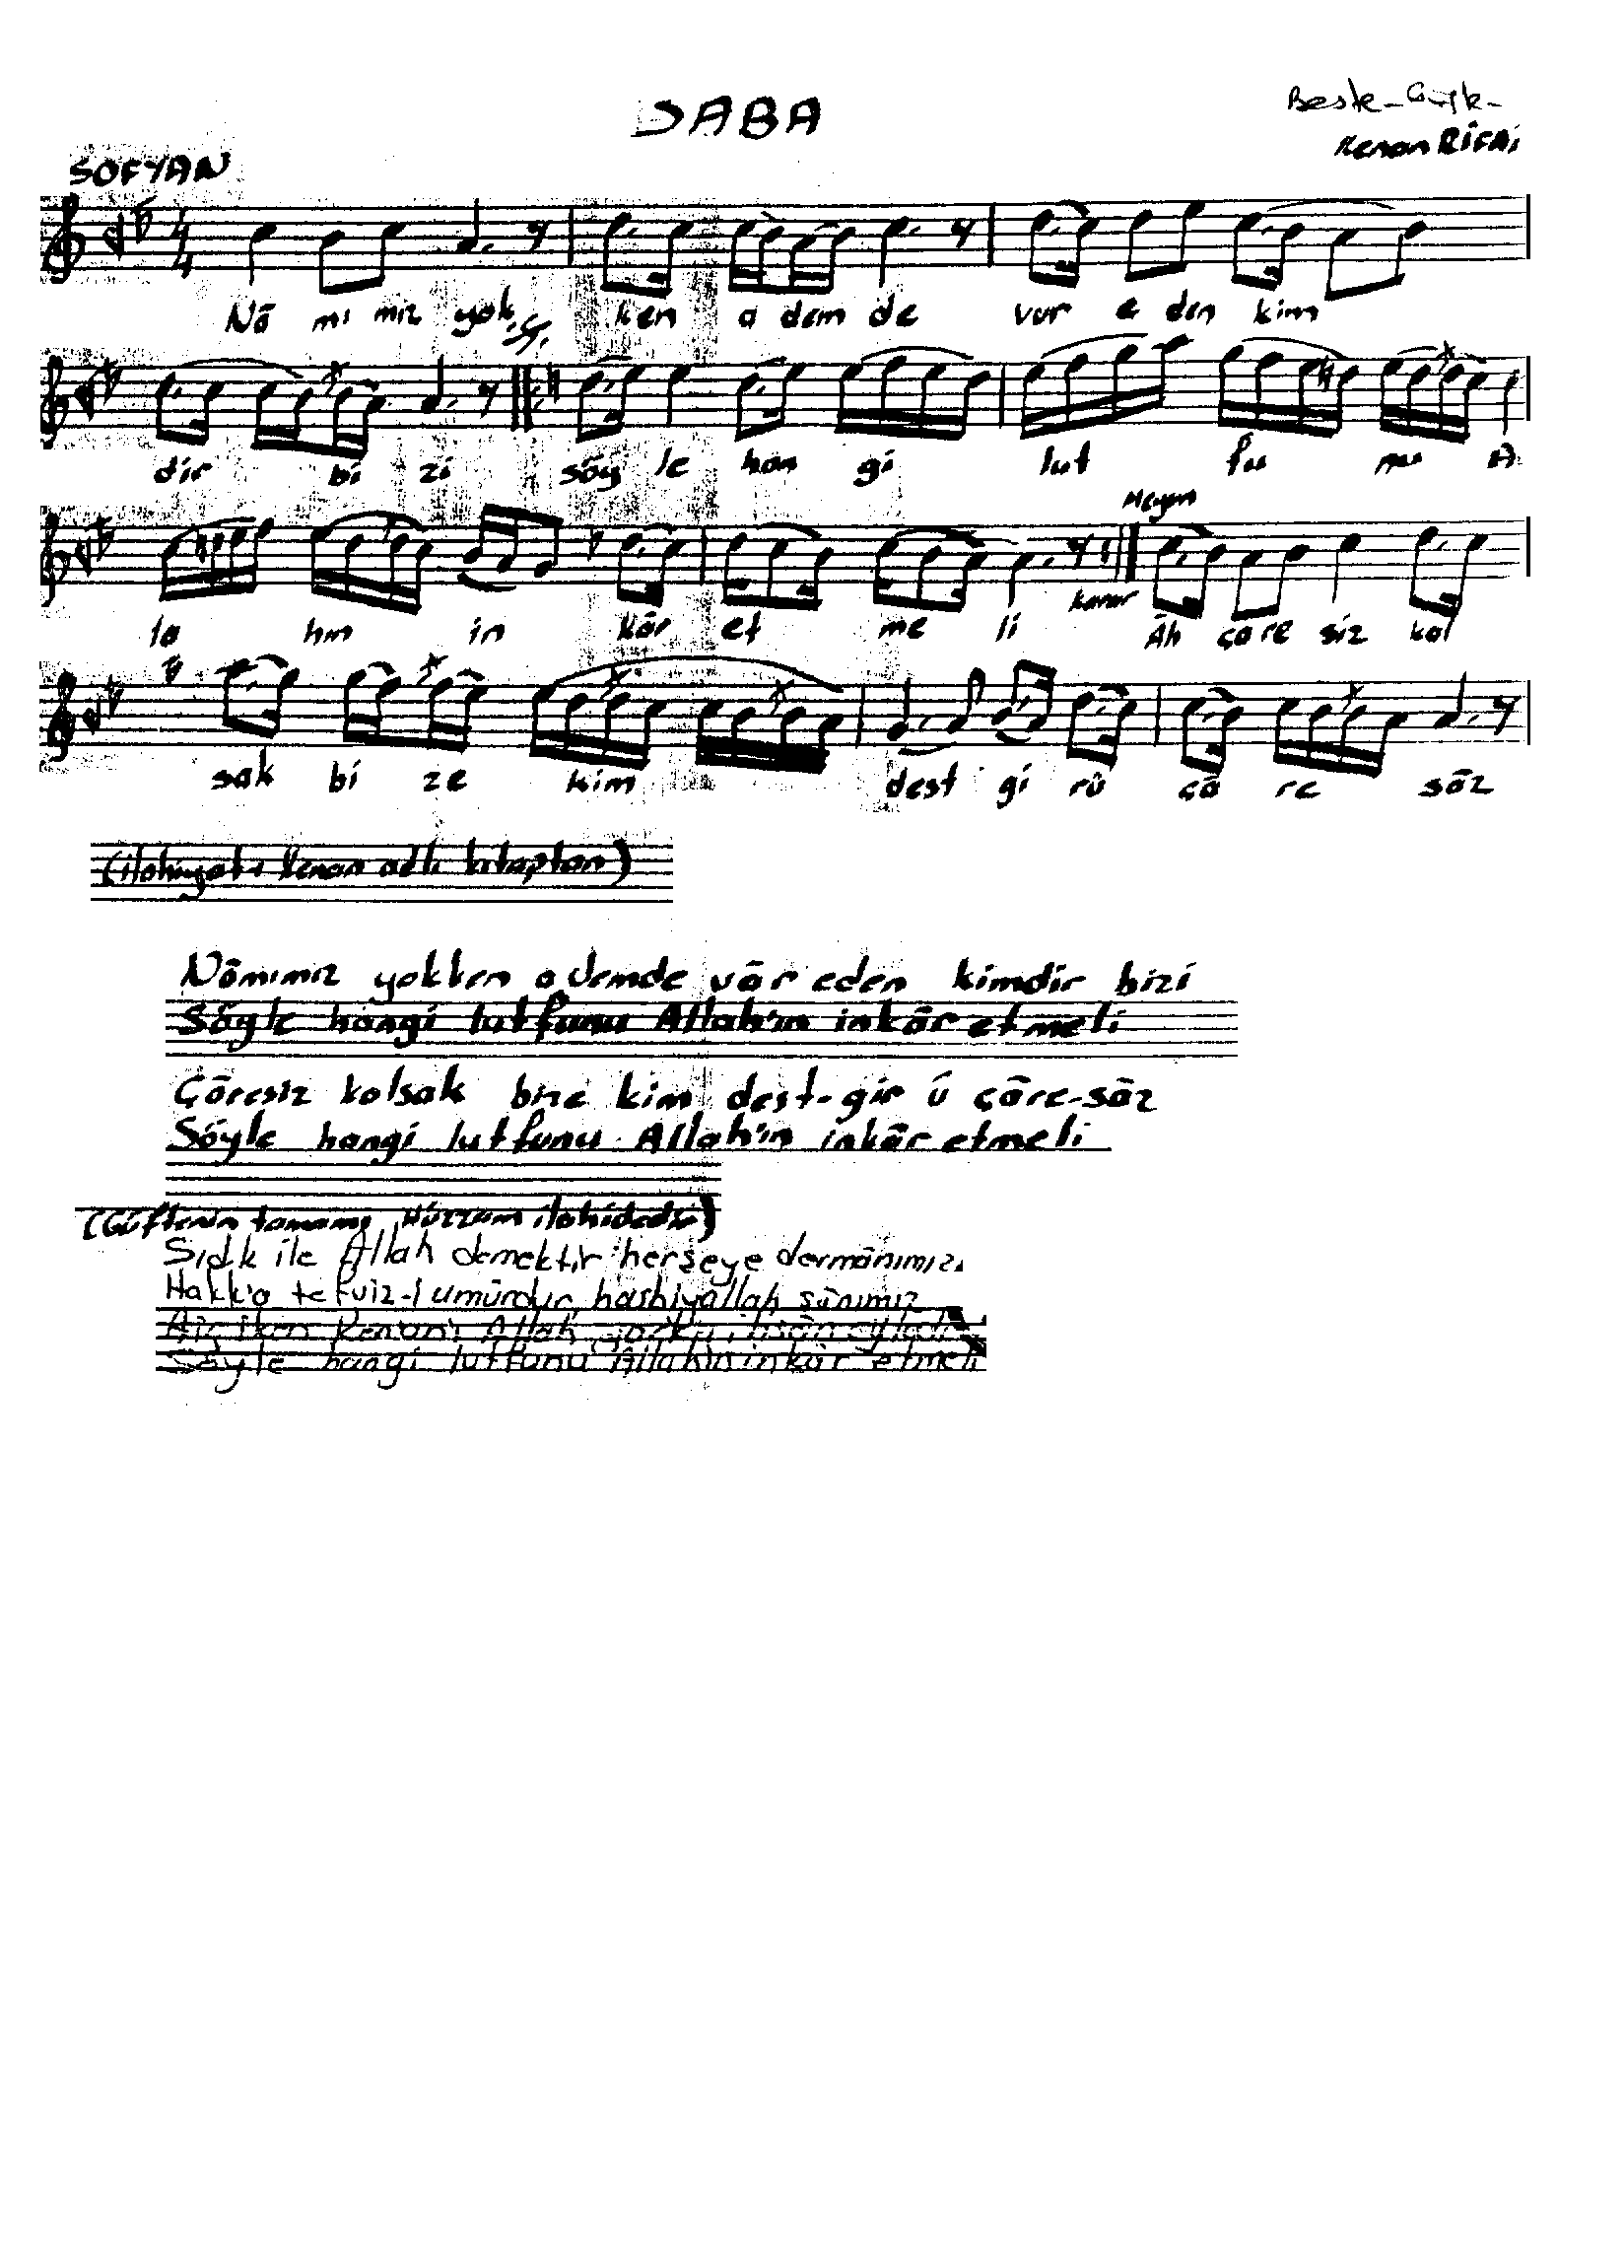 SABA
Beste - Güfte -
Kenan RİFAİ
SOFYAN
4
4
Nâ mı mız yok ken a dem de var e den kim
dir bi zi söy le han gi lut fu nu A
Meyan
la hın in kâr et me li Karar Âh ça re siz kal
sak bi ze kim dest gi rü çâ re sâz
(ilahiyat-ı Kenan adlı kitaptan)
Nâmımız yokken ademde vâr eden kimdir bizi
Söyle hangi lutfunu Allah'ın inkâr etmeli
Çâresiz kalsak bize kim dest-gir ü çâre-sâz
Söyle hangi lutfunu Allah'ın inkâr etmeli
(Güftenin tamamı Hüzzam ilahidedir)
Sıdk ile Allah demektir herşeye dermânımız
Hakk'a tefviz-i umûrdur hasbiyallah şânımız
Kenan'ı Allah
Söyle hangi lutfunu Allah'ın inkâr etmeli